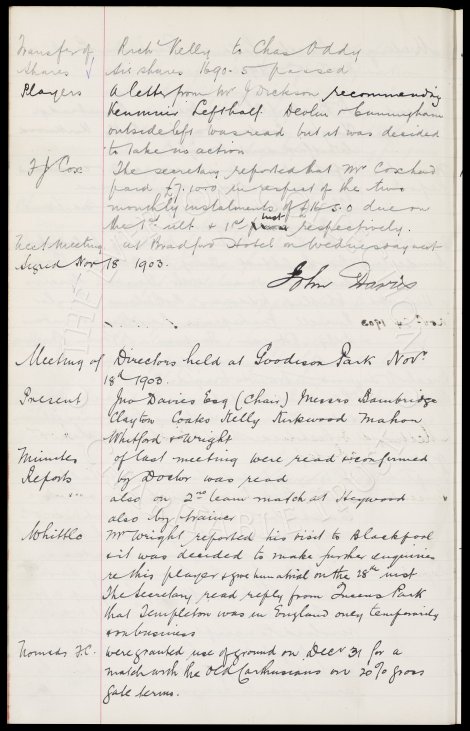 Transfer of Richd Kelly to Chas Oddy
Shares six shares 1690-5 passed
Players A letter from Mr J Dickson recommending
Kenmuir Lefthalf Devlin & Cunningham
outside left was read but it was decided
to take no action
F J Cox The secretary reported that Mr Cox had
paid £7.10.0 in respect of the two
monthly instalments of £16.5.0 due on
the 1st ult & 1st inst respectively.
Next Meeting at Bradford Hotel on Wednesday next
Signed Nov 18 1903.
John Davies
Meeting of Directors held at Goodison Park Novr
18th 1903
Present Jno Davies Esq (Chair) Messrs Bainbridge
Clayton Coates Kelly Kirkwood Mahon
Whitford & Wright
Minutes of last meeting were read & confirmed
Reports by Doctor was read
also on 2nd team match at Heywood
also by trainer
Whittle Mr Wright reported his visit to Blackpool
& it was decided to make further enquiries
re this player & give him a trial on the 28th inst
The Secretary read reply from Queens Park
that Templeton was in England only temporarily
& on business
Nomads F.C. were granted use of ground on Decr 31 for a
match with the Old Carthusians on 20% gross
gate terms.